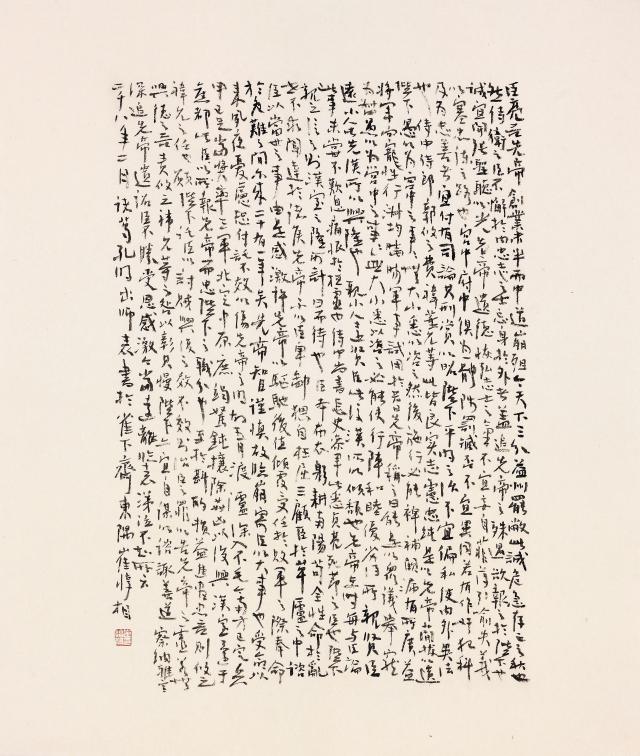 臣亮言先帝創業未半而中道崩殂今天下三分益州罷敝此誠危急存亡之秋也
然侍衛之臣不懈於內忠志之士忘身於外者蓋追先帝之殊遇欲報之於陛下也
誠宜開張聖聽以光先帝遺德恢弘志士之氣不宜妄自菲薄引喻失義
以塞忠諫之路也宮中府中俱為一體陟罰臧否不宜異同若有作奸犯科
及為忠善者宜付有司論其刑賞以昭陛下平明之治不宜偏私使內外異法
也侍中侍郎郭攸之費禕董允等此皆良實志慮忠純是以先帝簡拔以遺
陛下愚以為宮中之事事無大小悉以咨之然後施行必能裨補闕漏有所廣益
將軍向寵性行淑均曉暢軍事試用於昔日先帝稱之曰能是以眾議舉寵
為督愚以為營中之事事無大小悉以咨之必能使行陣和睦優劣得所親賢臣
遠小人此先漢所以興隆也親小人遠賢臣此後漢所以傾頹也先帝在時每與臣論
此事未嘗不歎息痛恨於桓靈也侍中尚書長史參軍此悉貞亮死節之臣也願陛下
親之信之則漢室之隆可計日而待也臣本布衣躬耕南陽苟全性命於亂
世不求聞達於諸侯先帝不以臣卑鄙猥自枉屈三顧臣於草廬之中諮
臣以當世之事由是感激許先帝以驅馳後值傾覆受任於敗軍之際奉命
於危難之間爾來二十有一年矣先帝知臣謹慎故臨崩寄臣以大事也受命以
來夙夜憂慮恐付託不效以傷先帝之明故五月渡瀘深入不毛今南方已定兵
甲已足當獎率三軍北定中原庶竭駑鈍攘除姦凶以復興漢室還于
舊都此臣所以報先帝而忠陛下之職分也至於斟酌損益進盡忠言則攸之
禕允之任也願陛下託臣以討賊興復之效不效則治臣之罪以告先帝之靈若無
興德之言責攸之禕允等之咎以彰其慢陛下亦宜自謀以諮諏善道察納雅言
深追先帝遺詔臣不勝受恩感激今當遠離臨表涕泣不知所云
二十八年二月諸葛孔明出師表書於下齋東隅崔